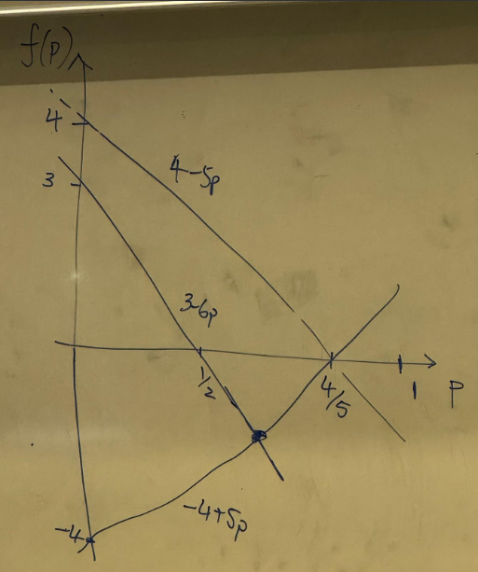 f(p)
4
4-5p
3
3-6p
1/2
4/5
1
p
-4+5p
-4